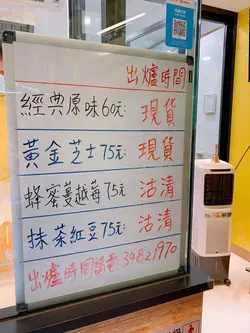 出爐時間
經典原味60元: 現貨
黃金芝士75元: 現貨
蜂蜜蔓越莓75元: 沽清
抹茶紅豆75元: 沽清
出爐時間請電: 34821970